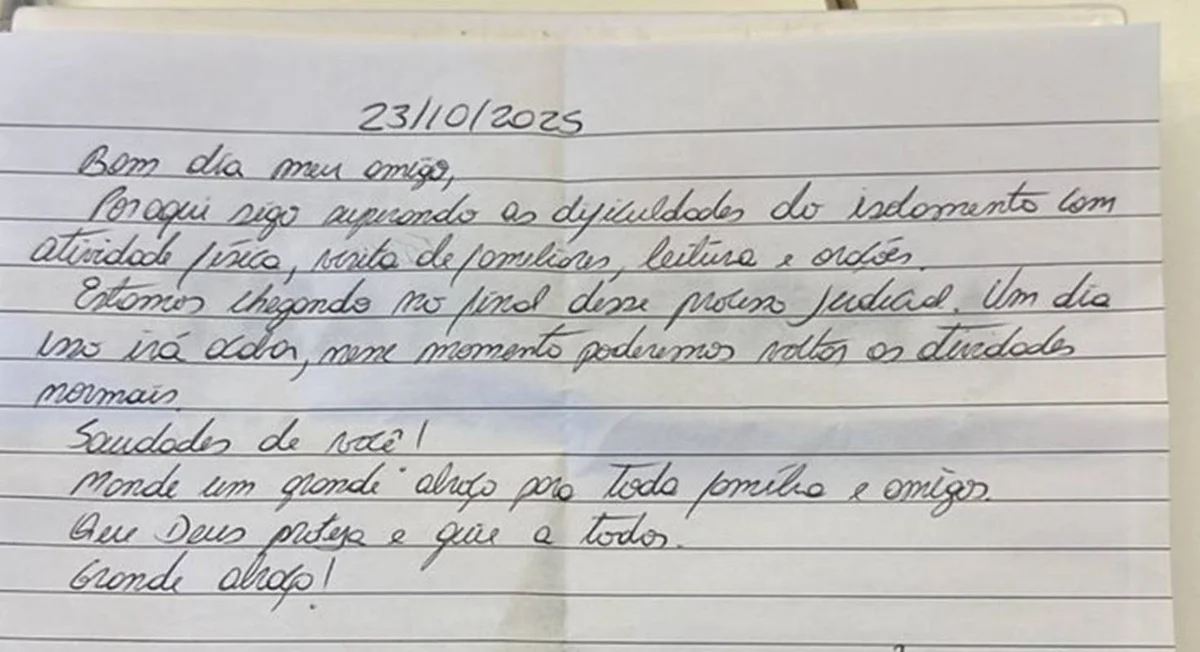 23/10/2025
Bom dia meu amigo,
Por aqui sigo superando as dificuldades do isolamento com
atividade física, visita de familiares, leitura e orações.
Estamos chegando no final desse processo judicial. Um dia
isso irá acabar, nesse momento poderemos voltar as atividades
normais.
Saudades de você!
Mande um grande abraço para toda família e amigos.
Que Deus proteja e guie a todos.
Grande abraço!